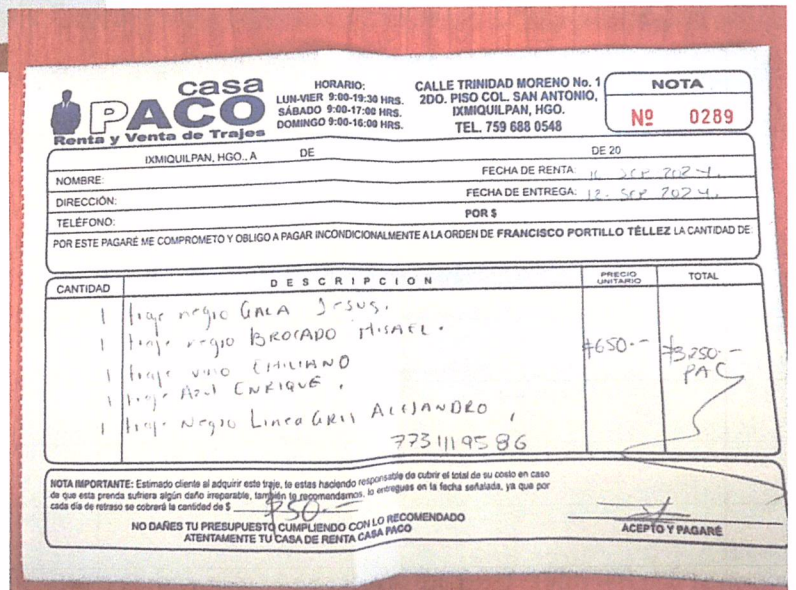 casa
PACO
Renta y Venta de Trajes
HORARIO:
LUN-VIER 9:00-19:30 HRS.
SÁBADO 9:00-17:00 HRS.
DOMINGO 9:00-16:00 HRS.
CALLE TRINIDAD MORENO No. 1
2DO. PISO COL. SAN ANTONIO,
IXMIQUILPAN, HGO.
TEL. 759 688 0548
NOTA
Nº 0289
IXMIQUILPAN, HGO., A DE DE 20
NOMBRE: FECHA DE RENTA: SEP 2024.
DIRECCIÓN: FECHA DE ENTREGA: 12. SEP 2024.
TELÉFONO: POR $
POR ESTE PAGARÉ ME COMPROMETO Y OBLIGO A PAGAR INCONDICIONALMENTE A LA ORDEN DE FRANCISCO PORTILLO TÉLLEZ LA CANTIDAD DE
CANTIDAD DESCRIPCION PRECIO UNITARIO TOTAL
1 traje negro GALA Jesus.
1 traje negro BROCADO MISAEL.
$650.- $3,250.-
1 traje vino EMILIANO PAG
1 traje Azul ENRIQUE.
1 traje Negro Linea GRIS ALEJANDRO,
7731119586
NOTA IMPORTANTE: Estimado cliente al adquirir este traje, te estas haciendo responsable de cubrir el total de su costo en caso
de que esta prenda sufriera algún daño irreparable, también te recomendamos, lo entregues en la fecha señalada, ya que por
cada día de retraso se cobrará la cantidad de $ $50.-
NO DAÑES TU PRESUPUESTO CUMPLIENDO CON LO RECOMENDADO
ATENTAMENTE TU CASA DE RENTA CASA PACO
ACEPTO Y PAGARÉ